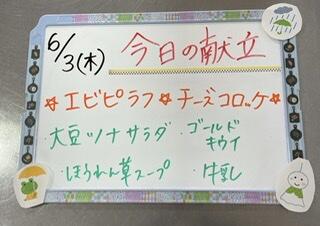 6/3(木) 今日の献立
☆エビピラフ☆チーズコロッケ☆
・大豆ツナサラダ
・ゴールドキウイ
・ほうれん草スープ
・牛乳